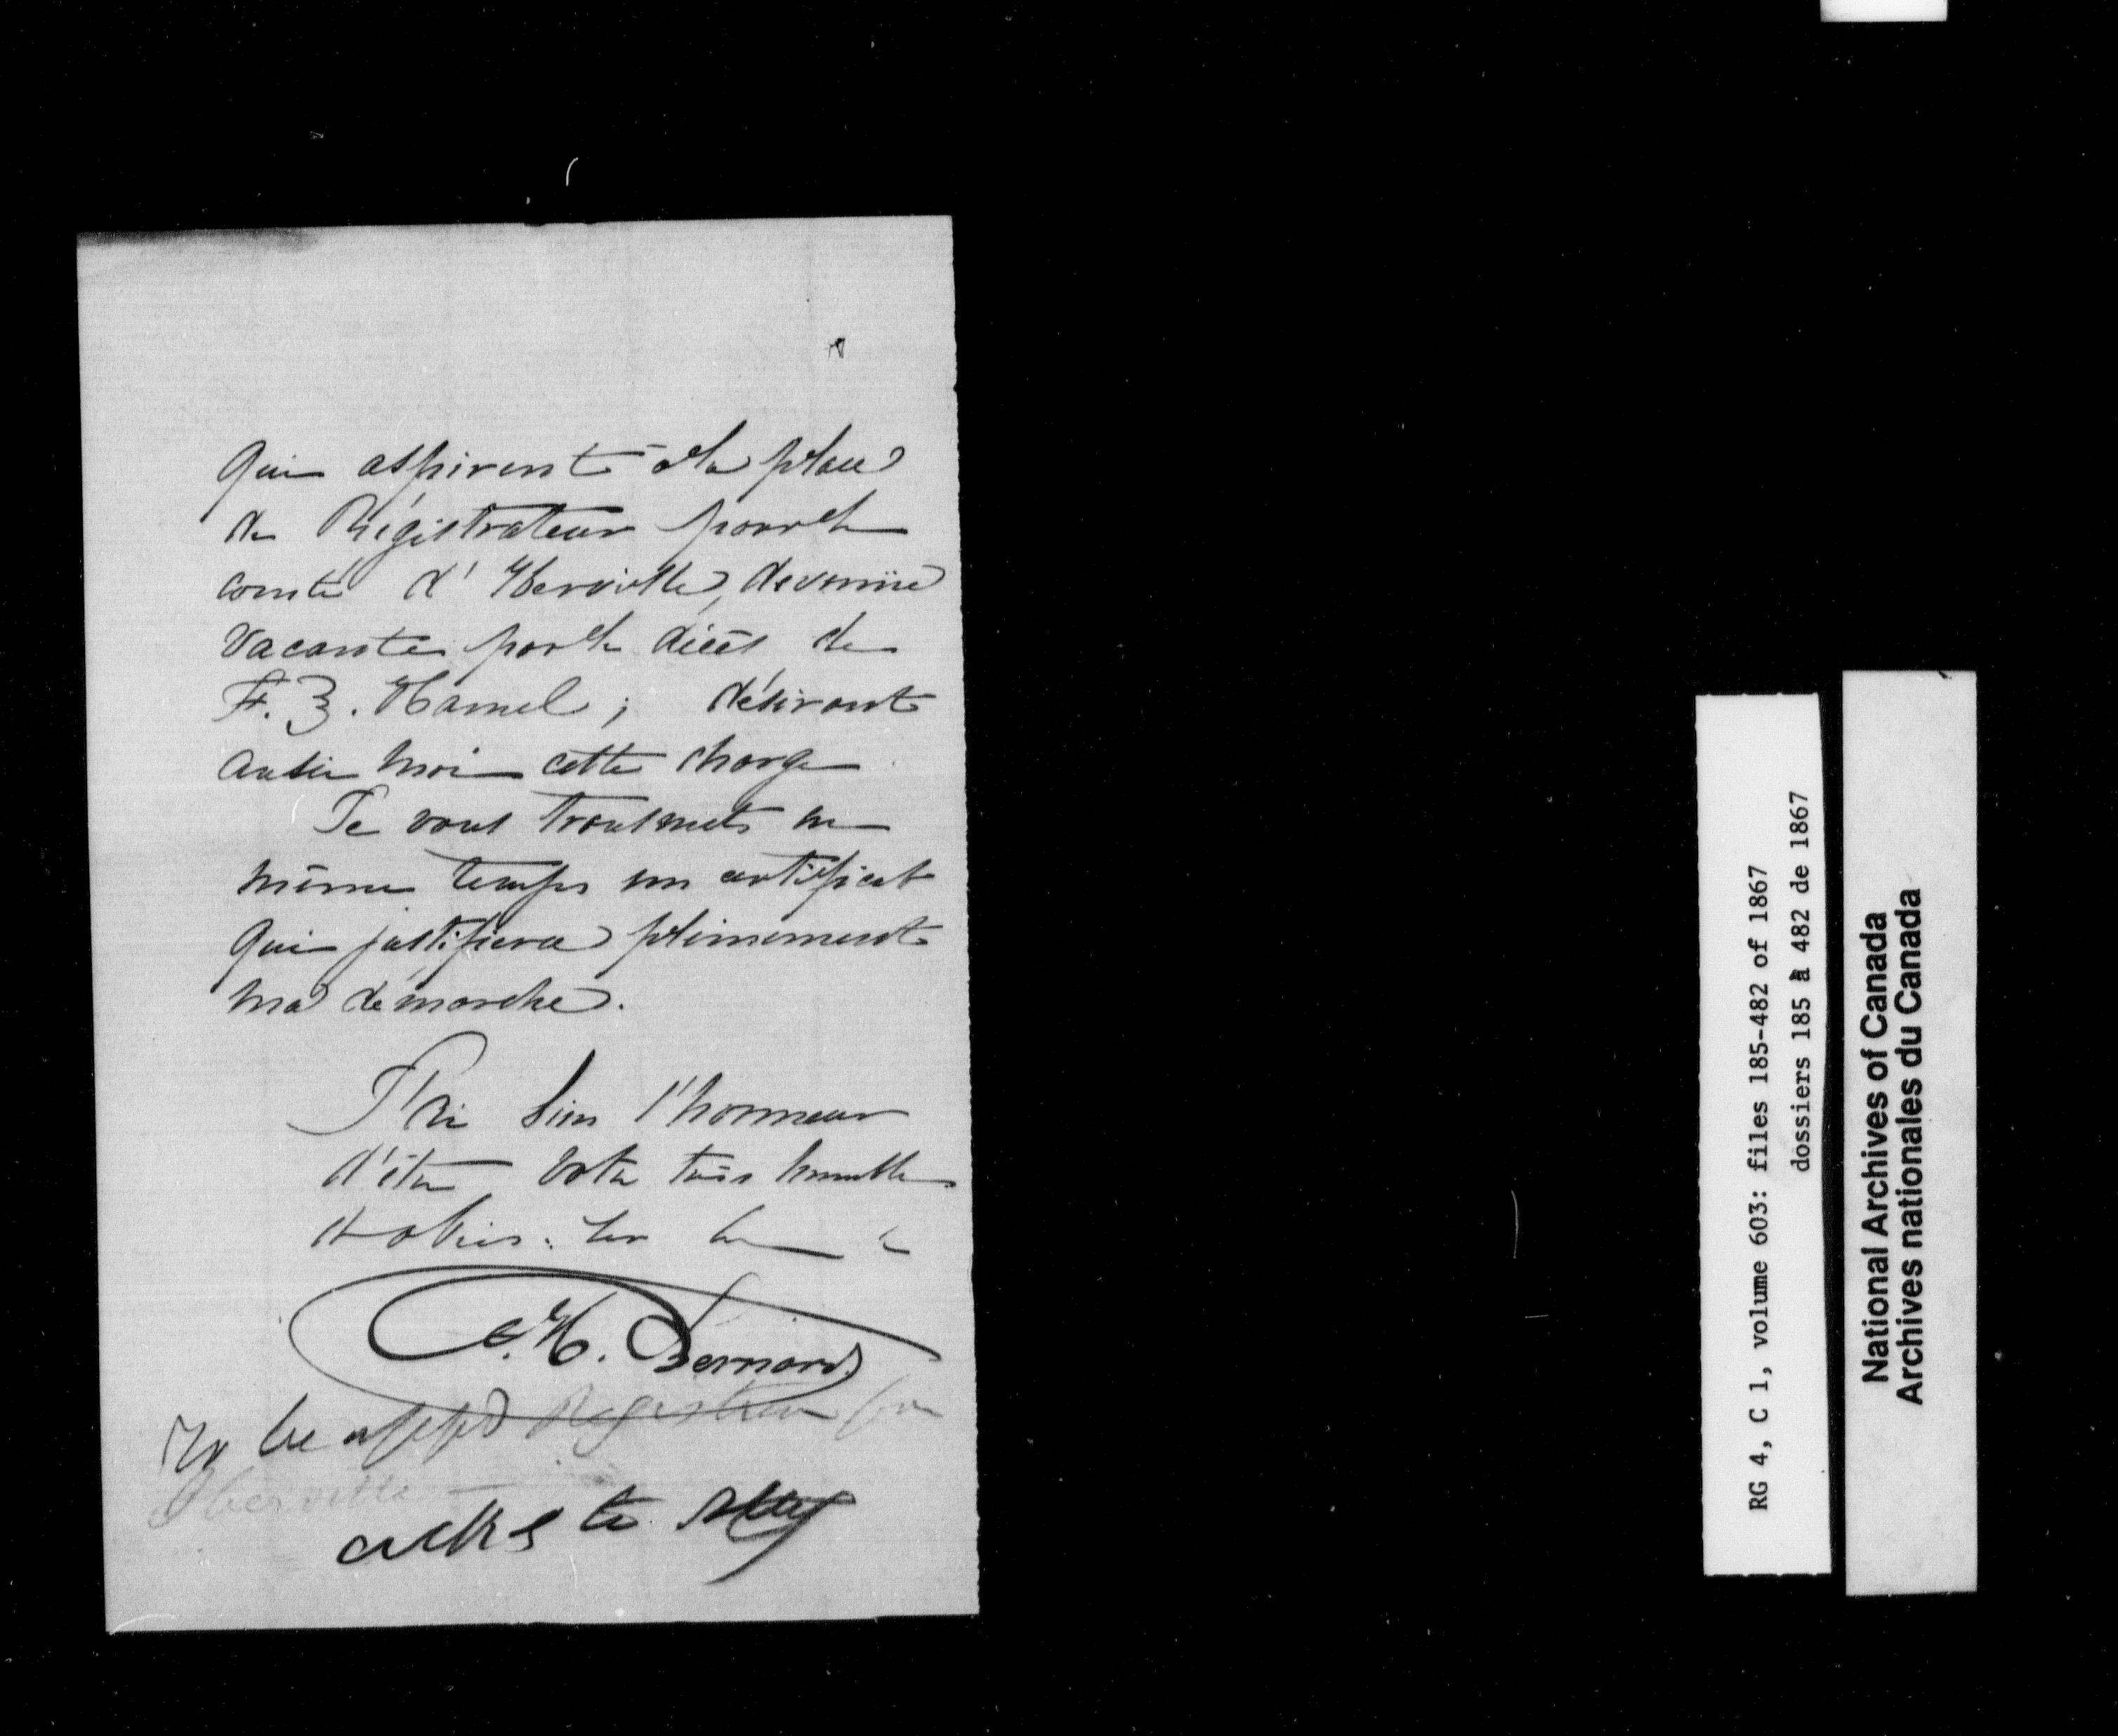 qui aspirent à la place
de Régistrateur pour le
comté d'Iberville, devenüe
vacante par le décès de
F. Z. Hamel ; désirant
aussi moi cette charge
Je vous transmets en
même temps un certificat
qui justifiera pleinement
ma démarche.
J'ai bien l'honneur
d'être votre très humble
et obéis.
A. H. Bernard
To be appd Registrar for
Iberville
RG 4, C 1, volume 603: files 185-482 of 1867
dossiers 185 à 482 de 1867
National Archives of Canada
Archives nationales du Canada